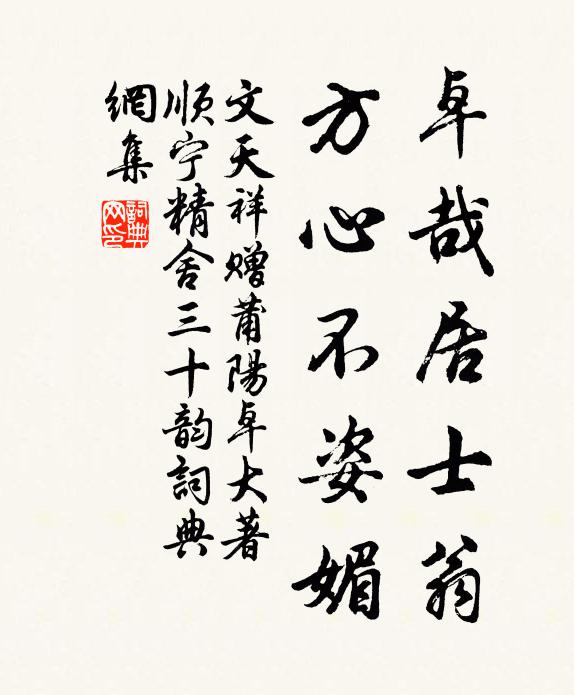 卓哉居士翁
方心不姿媚
文天祥赠莆陽卓大著
順宁精舍三十韵詞典
網集
詞典網印